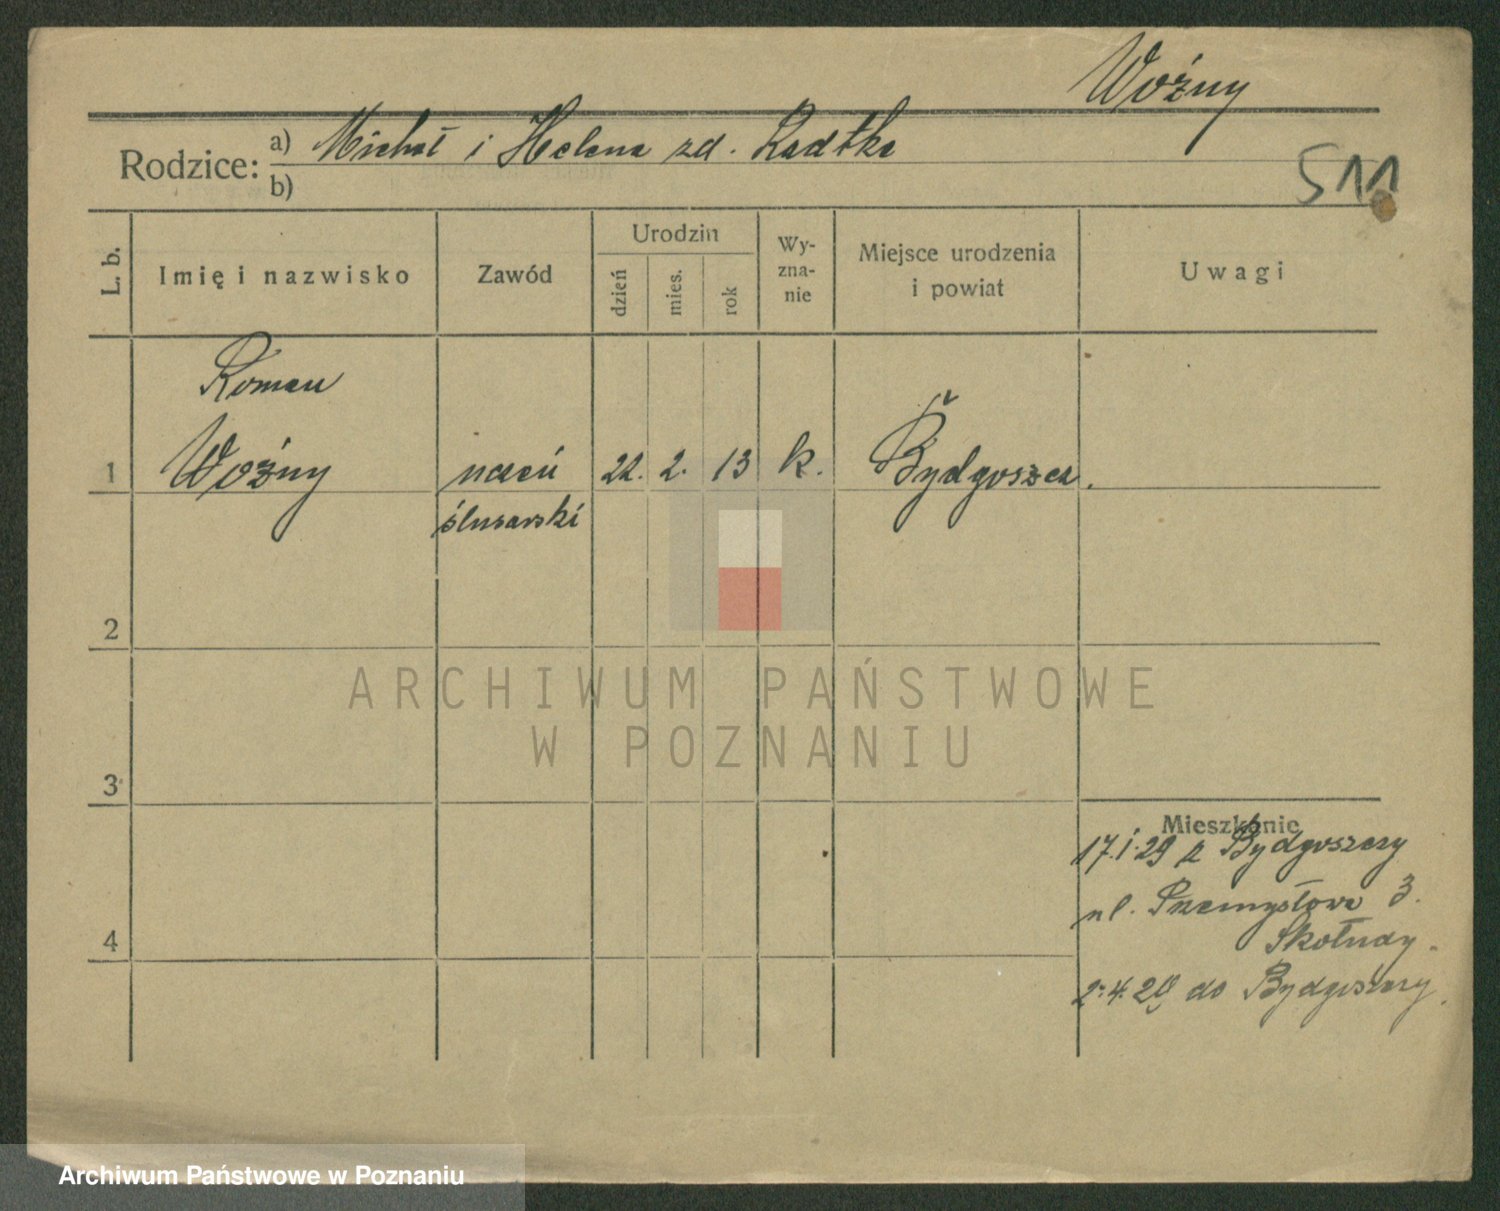 Woźny
Rodzice: a) Michał i Helena zd. Radtke
b)
511
L. b.
Imię i nazwisko
Zawód
Urodzin
dzień
mies.
rok
Wy-
zna-
nie
Miejsce urodzenia
i powiat
Uwagi
Roman
1 Woźny uczeń 22. 2. 13 k. Bydgoszcz.
ślusarski
2
ARCHIWUM PAŃSTWOWE
W POZNANIU
3
Mieszkanie
17.1.29 z Bydgoszczy
ul. Przemysłowa 3.
Skołudy.
4
2.4.29 do Bydgoszczy.
Archiwum Państwowe w Poznaniu